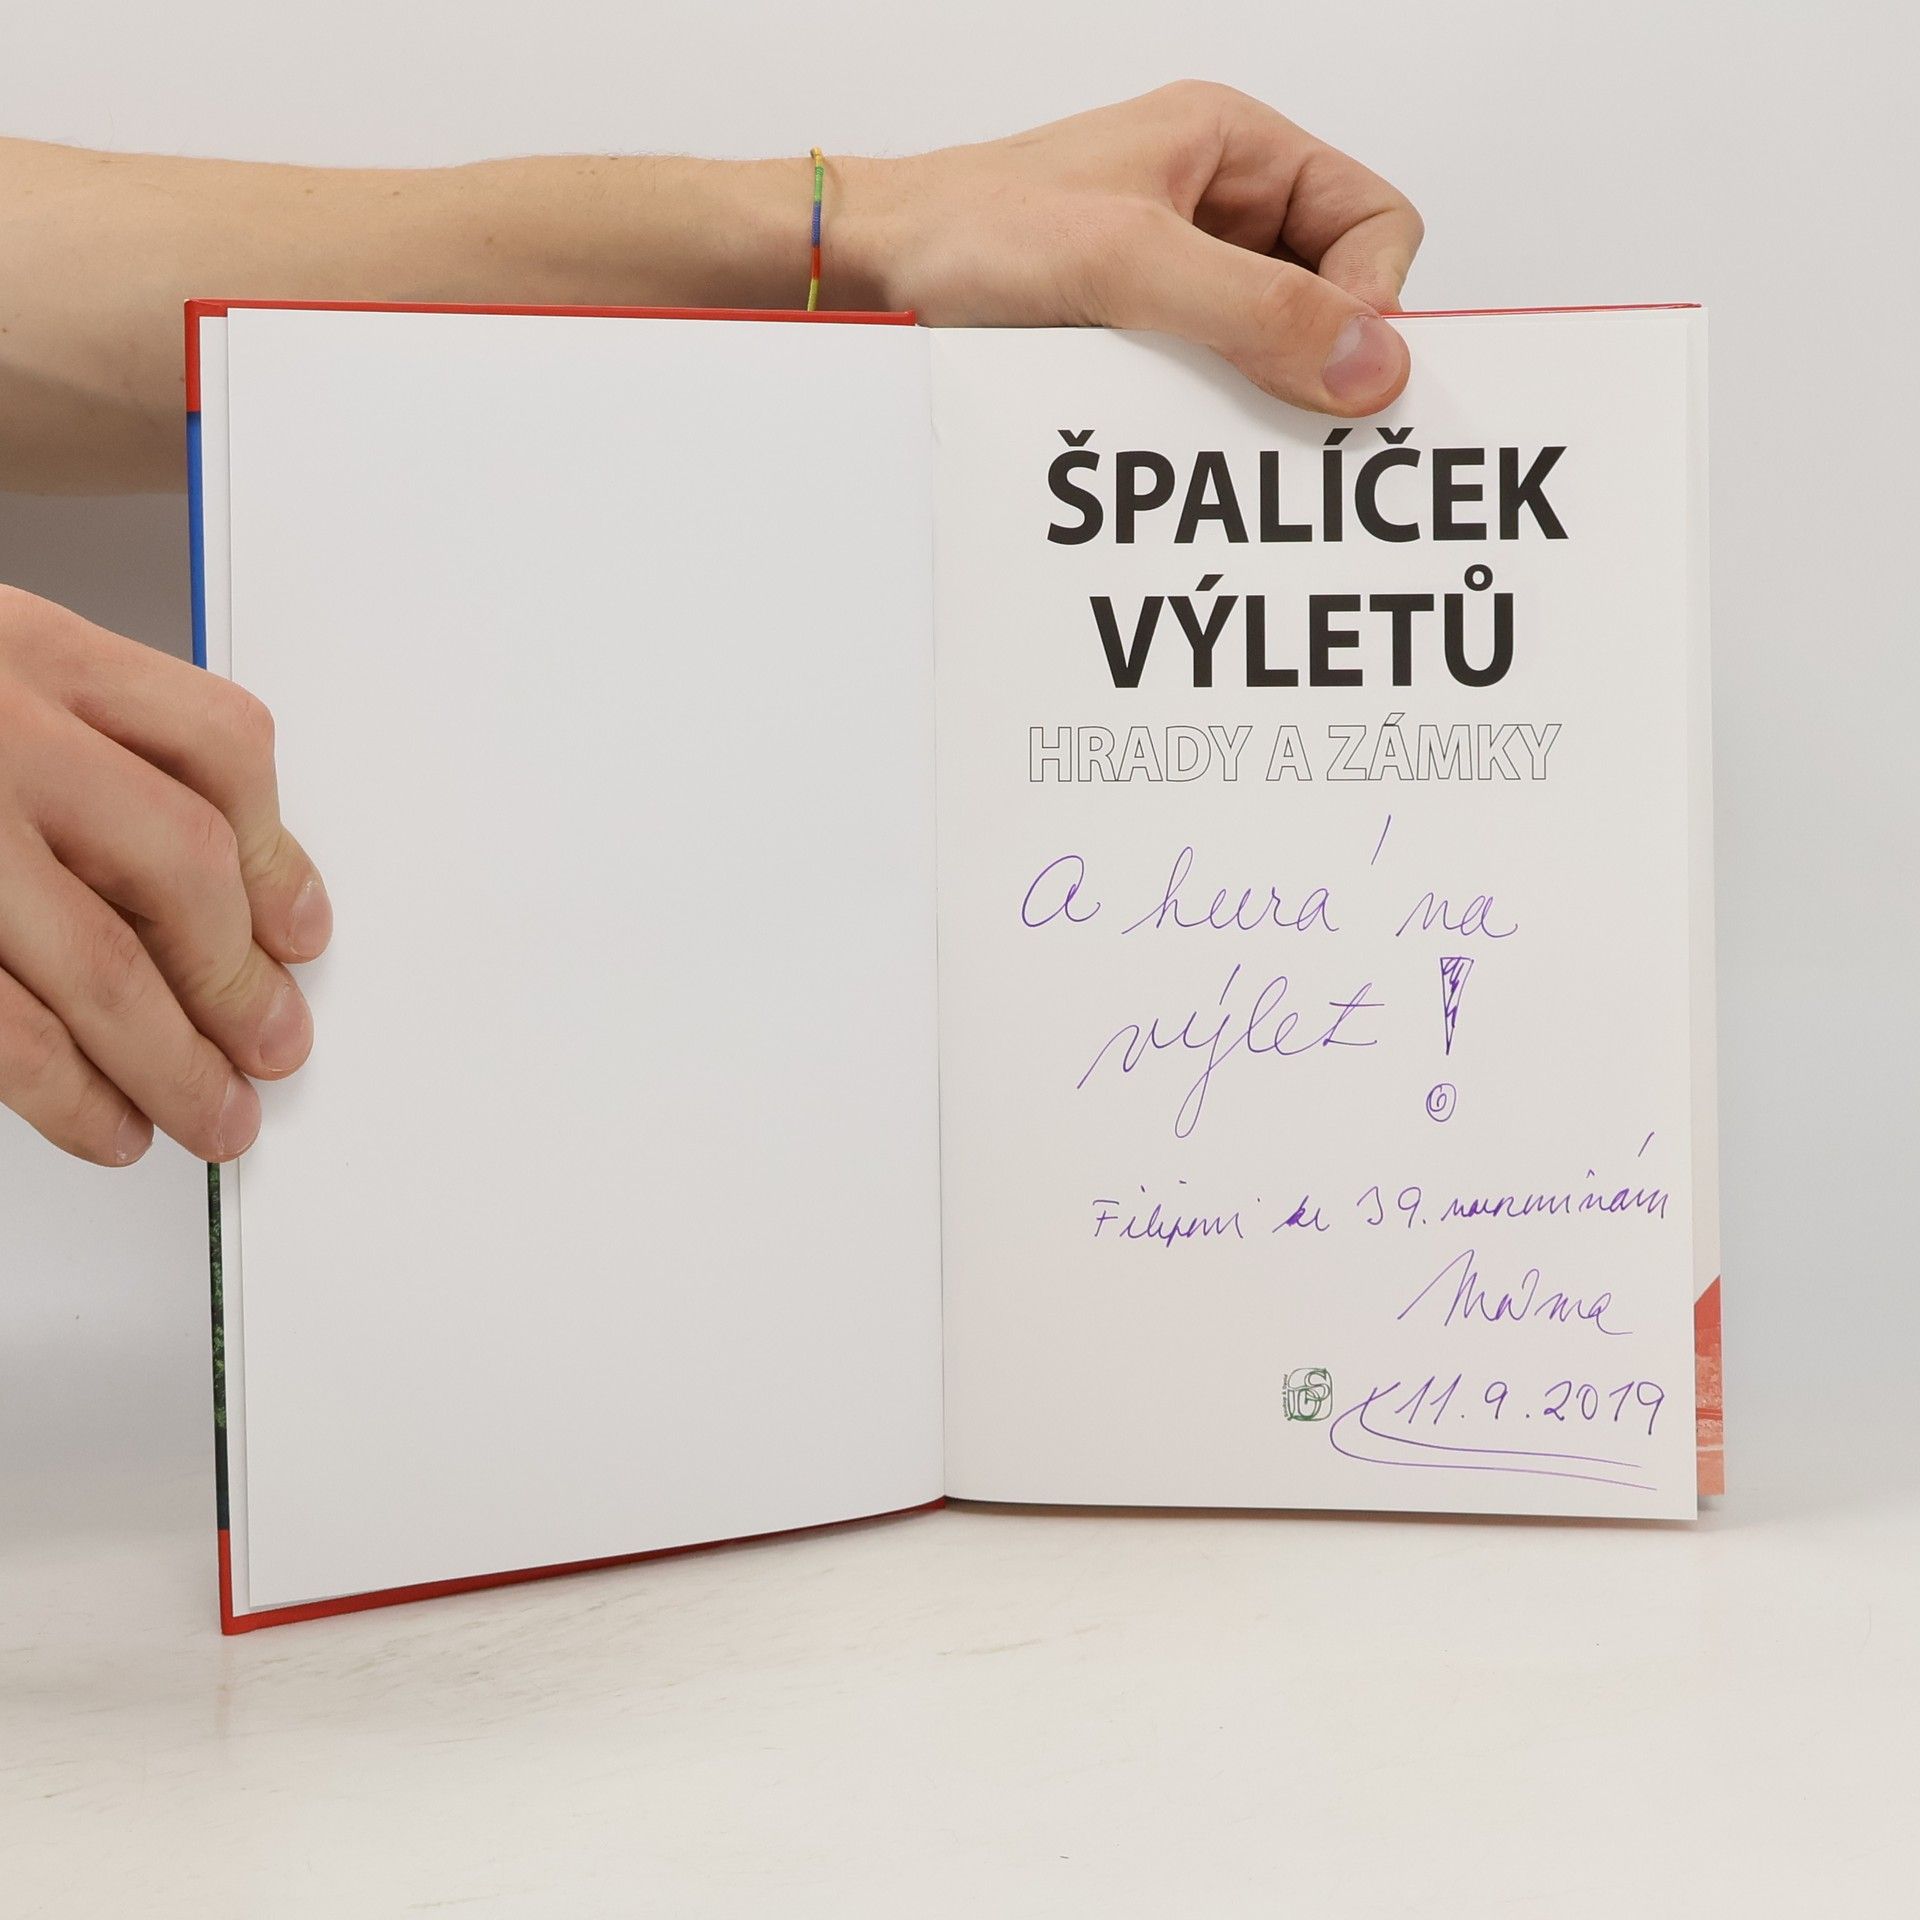 ŠPALÍČEK
VÝLETŮ
HRADY A ZÁMKY
A hurá na
výlet!
Filipovi k 39. narozeninám
Máma
11.9.2019